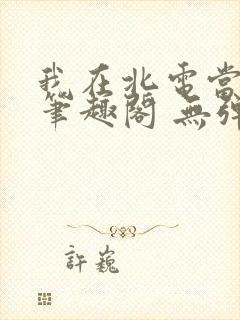 我在北電當
筆趣閣 無彈
許巍